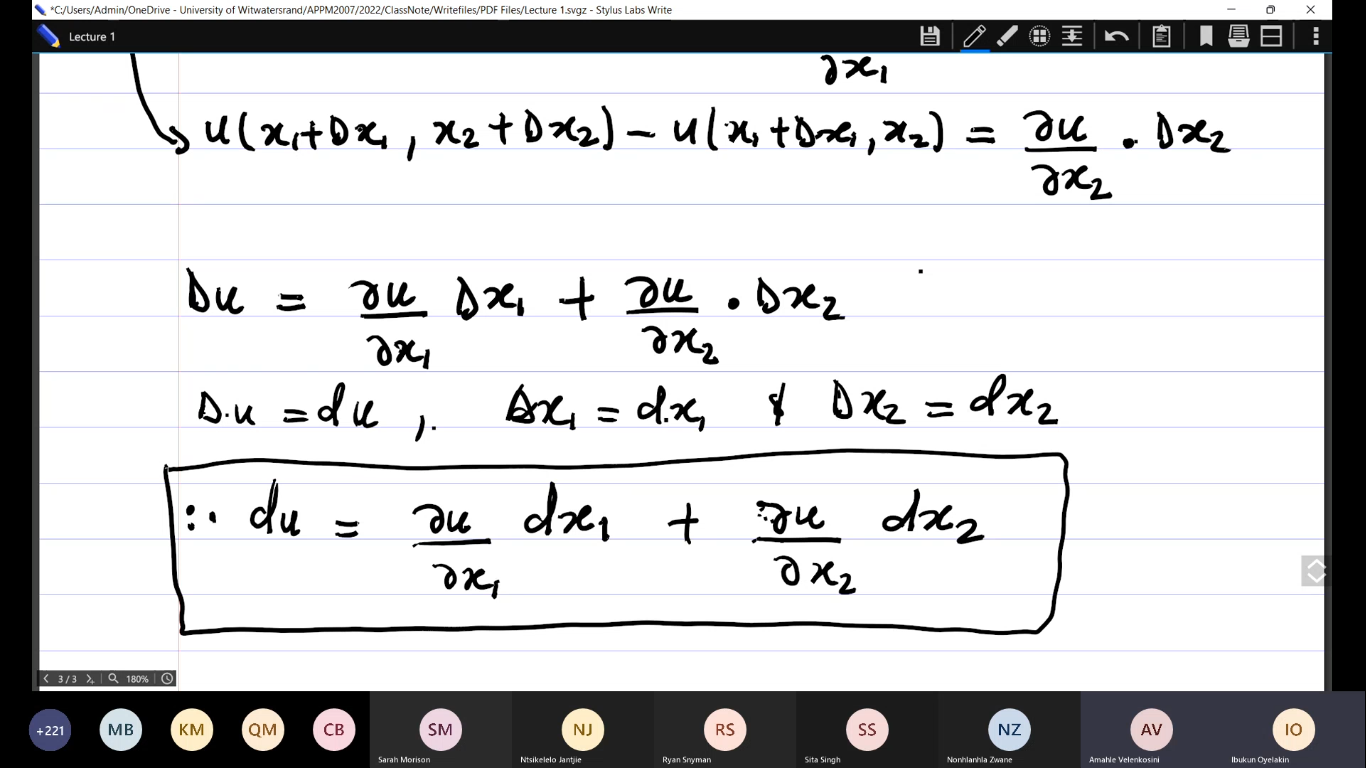 *C:/Users/Admin/OneDrive - University of Witwatersrand/APPM2007/2022/ClassNote/Writefiles/PDF Files/Lecture 1.svgz - Stylus Labs Write
Lecture 1
∂x₁
u(x₁+Δx₁, x₂+Δx₂) − u(x₁+Δx₁, x₂) = ∂u/∂x₂ · Δx₂
Δu = ∂u/∂x₁ Δx₁ + ∂u/∂x₂ · Δx₂
Δu = du, Δx₁ = dx₁ & Δx₂ = dx₂
∴ du = ∂u/∂x₁ dx₁ + ∂u/∂x₂ dx₂
3/3 180%
+221 MB KM QM CB SM NJ RS SS NZ AV IO
Sarah Morison Ntsikelelo Jantjie Ryan Snyman Sita Singh Nonhlanhla Zwane Amahle Velenkosini Ibukun Oyelakin